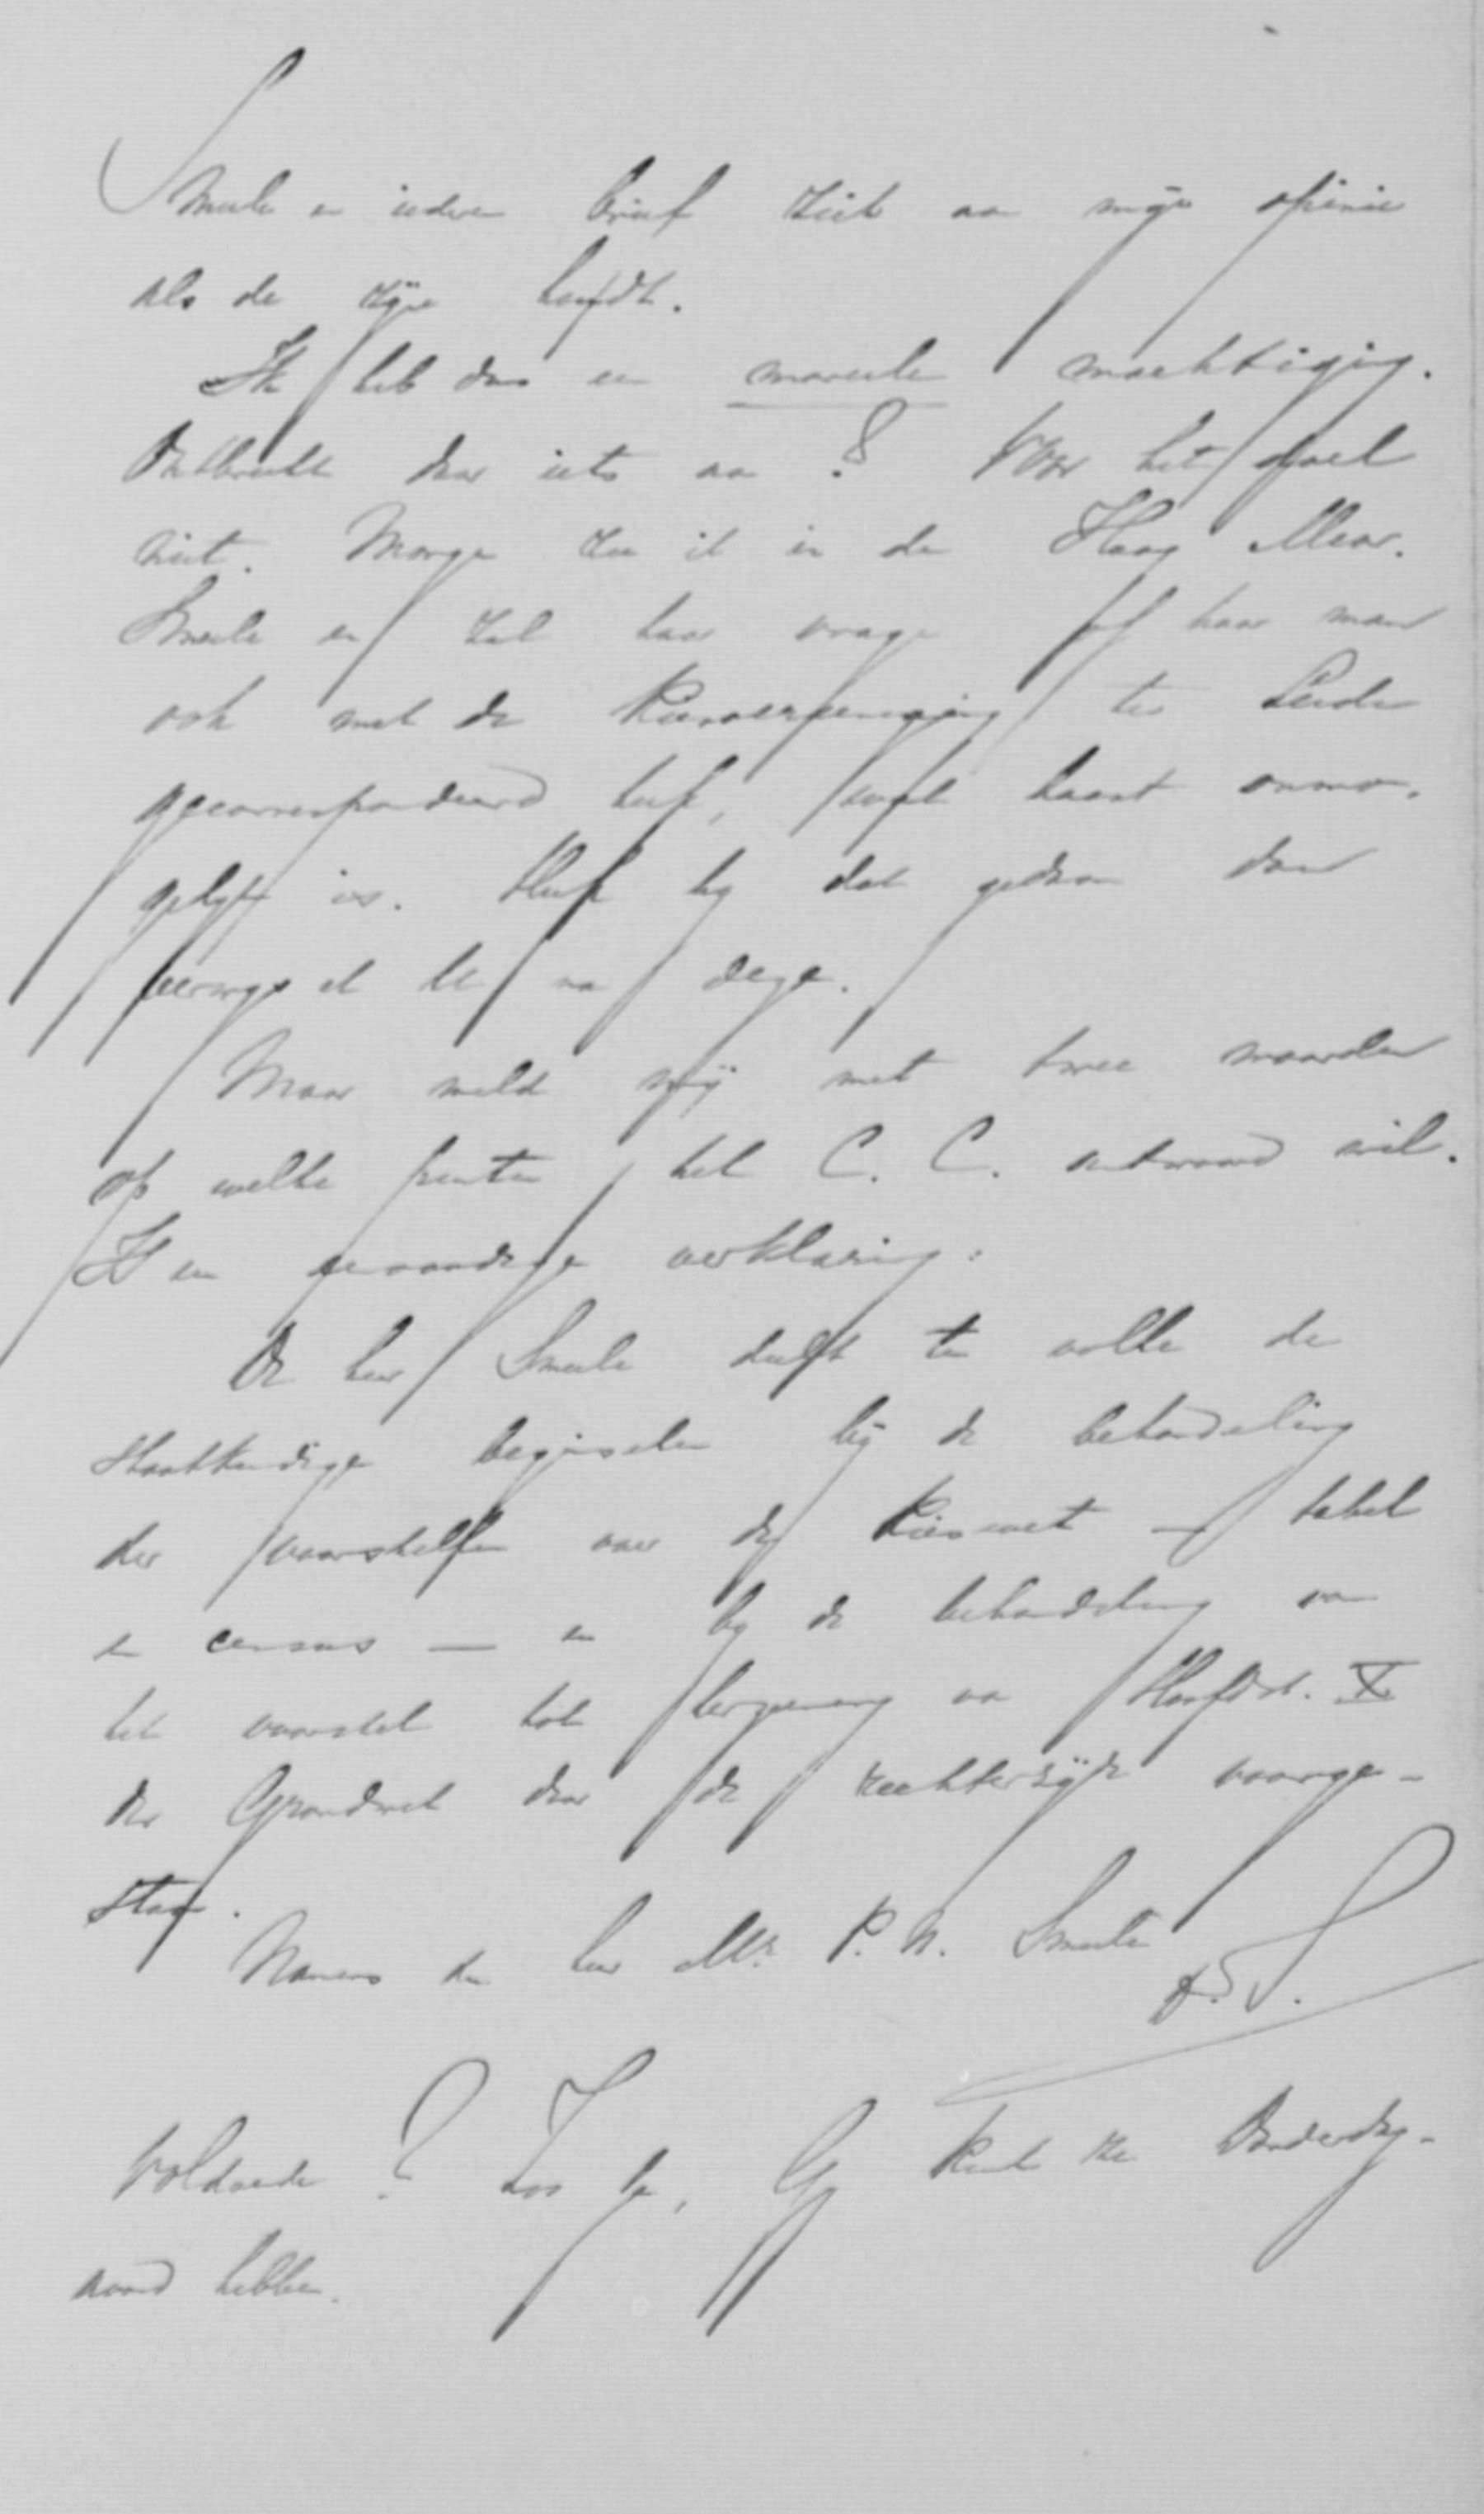 Smeele in iedere brief zich aan mijn opinie
als de zijne houdt.
Ik heb dus een moreele machtiging.
Ontbreekt daar iets aan? Voor het doel
niet. Morgen zie ik in den Haag Mevr.
Smeele en zal haar vragen of haar man
ook met de Kiesvereeniging te Leiden
gecorrespondeerd heeft, wat haast onmo-
gelijk is. Heeft hij dat gedaan dan
Maar meld mij met twee woorden
op welke punten het C. C. antwoord wil.
Is een eenvoudige verklaring:
De heer Smeele deelt ten volle de
staatkundige beginselen bij de behandeling
der voorstellen over de Kieswet — tabel
en census — en bij de behandeling van
het voorstel tot herziening van Hoofdst. X
der Grondwet door de rechterzijde voorge-
staan.
Namens den heer Mr. P. N. Smeele
Voldoende? Zoo ja, Gij kunt ze Donderdag-
avond hebben.